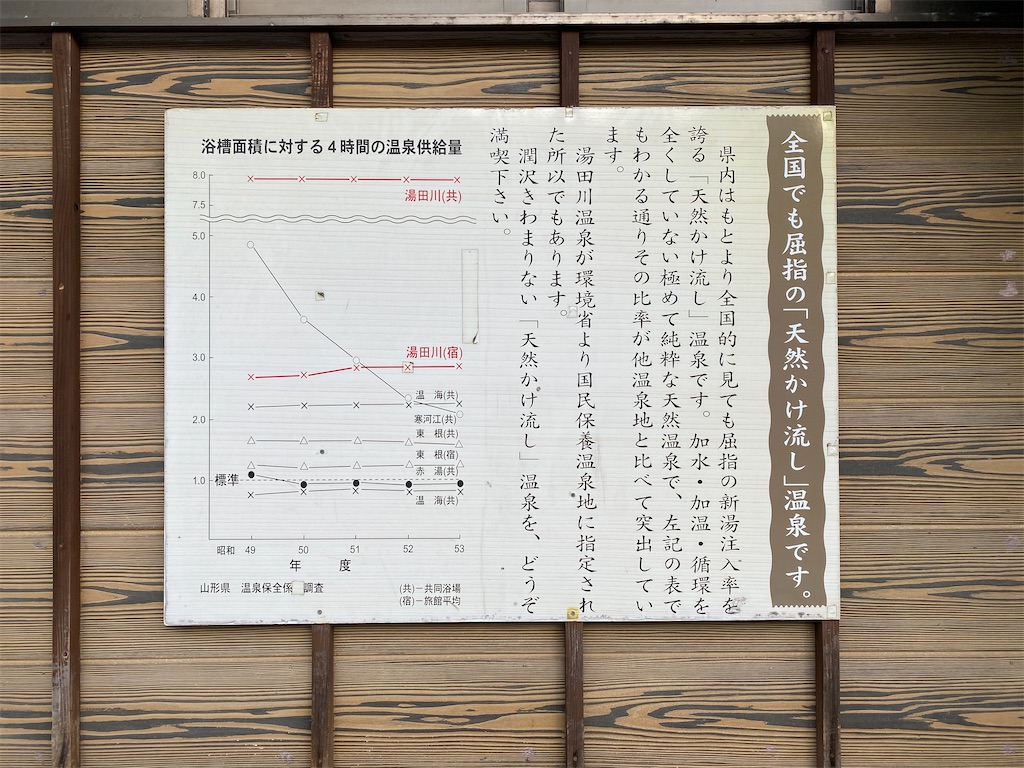 全国でも屈指の「天然かけ流し」温泉です。
県内はもとより全国的に見ても屈指の新湯注入率を
誇る「天然かけ流し」温泉です。加水・加温・循環を
全くしていない極めて純粋な天然温泉で、左記の表で
もわかる通りその比率が他温泉地と比べて突出してい
ます。
湯田川温泉が環境省より国民保養温泉地に指定され
た所以でもあります。
潤沢きわまりない「天然かけ流し」温泉を、どうぞ
満喫下さい。
浴槽面積に対する4時間の温泉供給量
8.0
湯田川(共)
7.5
5.0
4.0
3.0
湯田川(宿)
温 海(共)
2.0
寒河江(共)
東 根(共)
東 根(宿)
赤 湯(共)
1.0 標準
温 海(共)
昭和 49 50 51 52 53
年 度
山形県 温泉保全係 調査
(共)－共同浴場
(宿)－旅館平均